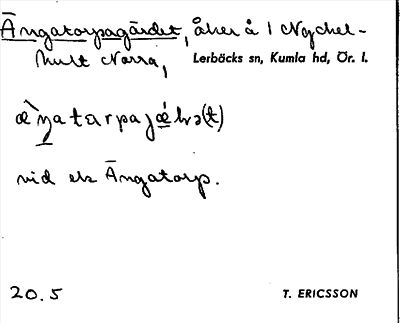 Ängatorpagärdet, åker å 1 Nyckel-
hult Norra, Lerbäcks sn, Kumla hd, Ör. l.
vid ek Ängatorp.
20.5 T. ERICSSON